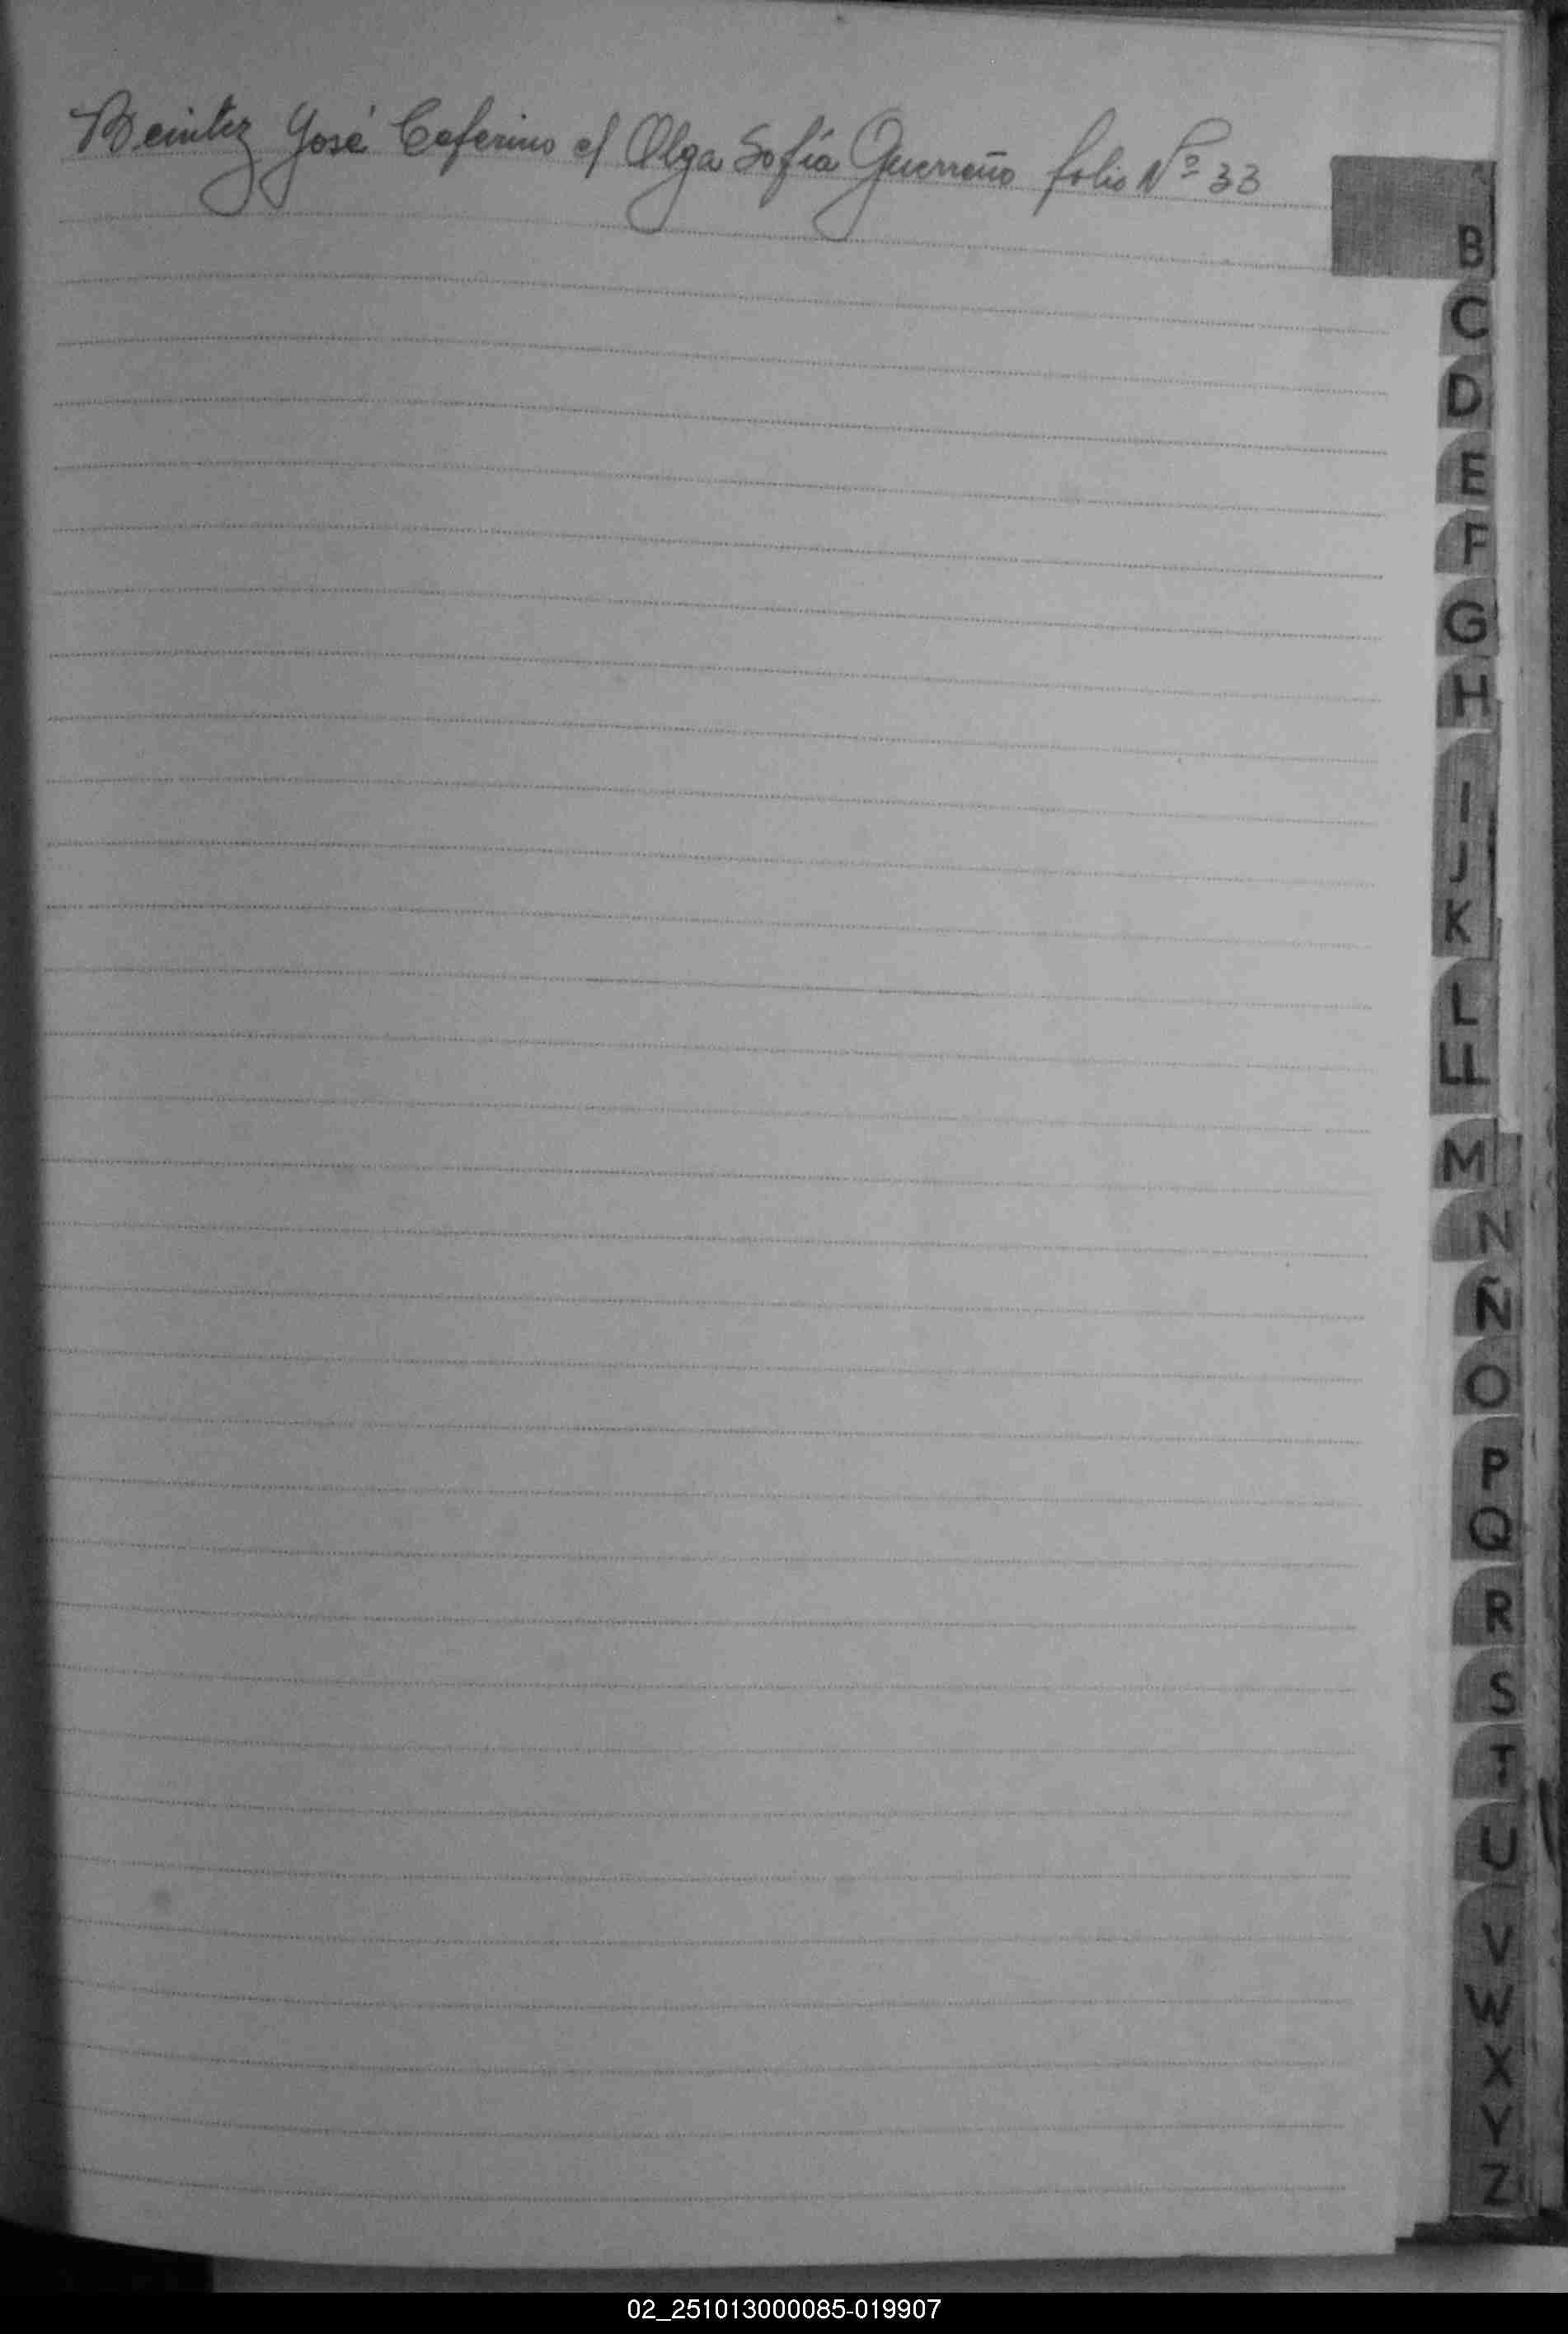 Benitez José Ceferino c/ Olga Sofía Guerreño folio Nº 33
B
C
D
E
F
G
H
I
J
K
L
LL
M
N
Ñ
O
P
Q
R
S
T
U
V
W
X
Y
Z
02_251013000085-019907